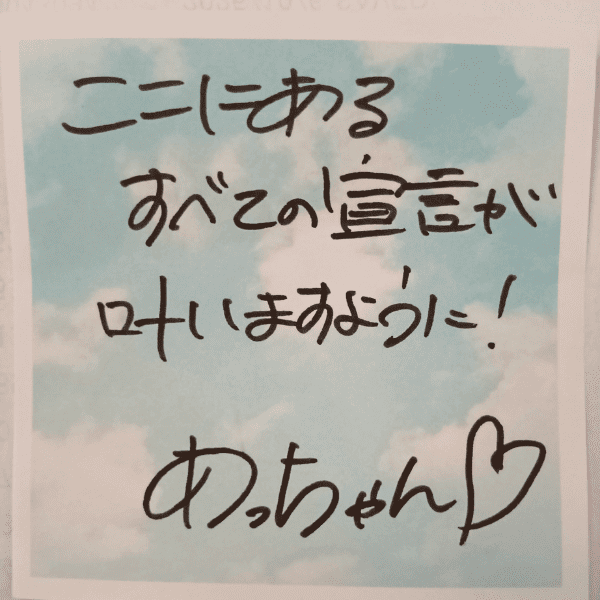 ここにある
すべての宣言が
叶いますように!
あっちゃん♡